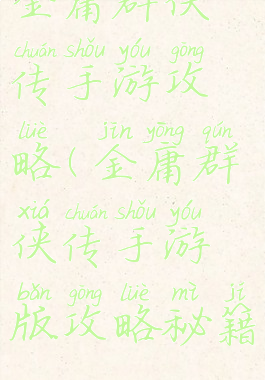 金庸群侠
chuán shǒu yóu gōng
传手游攻
lüè jīn yōng qún
略(金庸群
xiá chuán shǒu yóu
侠传手游
bǎn gōng lüè mì jí
版攻略秘籍